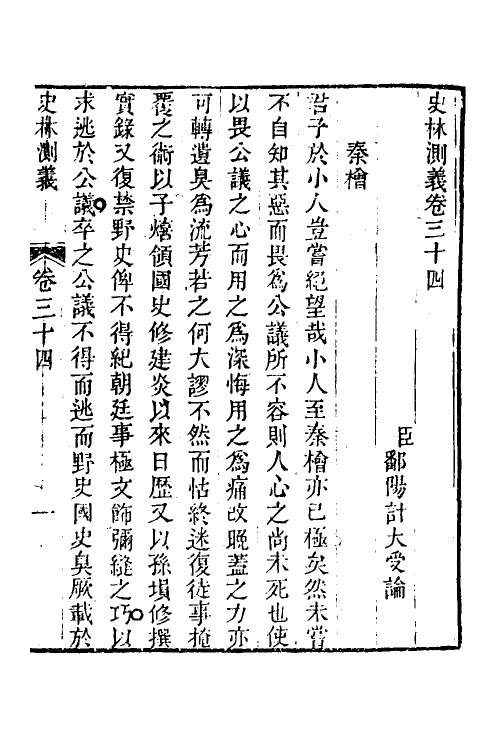 史林測義卷三十四
臣鄱陽計大受論
秦檜
君子於小人豈嘗絕望哉小人至秦檜亦已極矣然未嘗
不自知其惡而畏為公議所不容則人心之尚未死也使
以畏公議之心而用之為深悔用之為痛改晚蓋之力亦
可轉遺臭為流芳若之何大謬不然而怙終迷復徒事掩
覆之術以子熺領國史修建炎以來日歷又以孫塤修撰
實錄又復禁野史俾不得紀朝廷事極文飾彌縫之巧以
求逃於公議卒之公議不得而逃而野史國史臭厥載於
史林測義
卷三十四
一